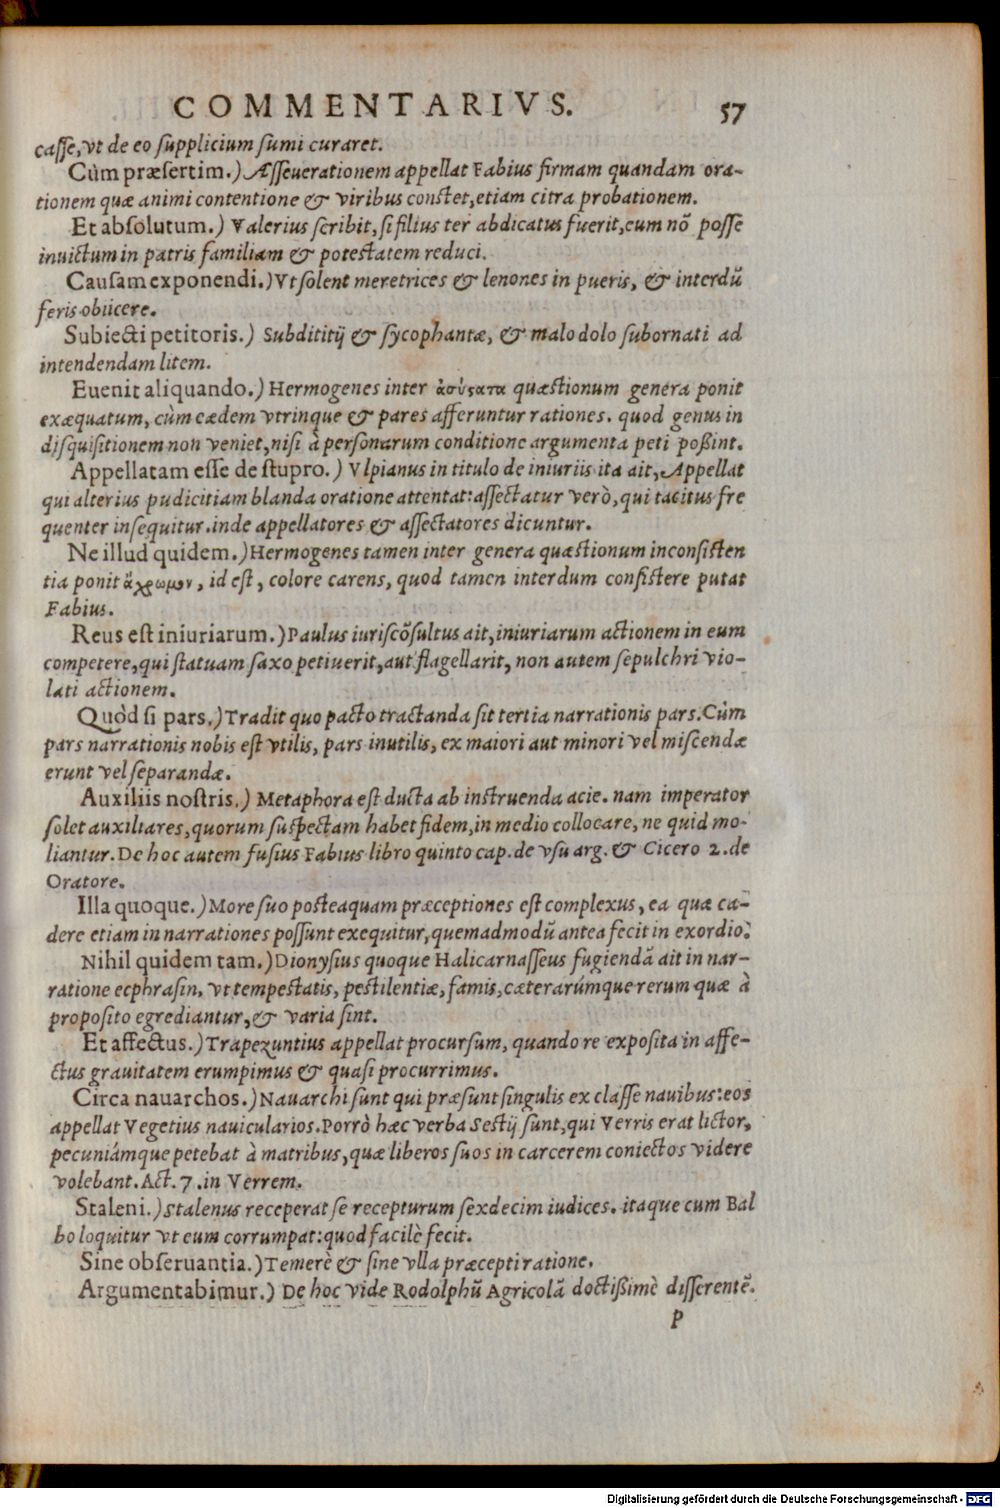 COMMENTARIVS. 57
casse, vt de eo supplicium sumi curaret.
Cùm præsertim.) Asseuerationem appellat Fabius firmam quandam ora-
tionem quæ animi contentione & viribus constet, etiam citra probationem.
Et absolutum.) Valerius scribit, si filius ter abdicatus fuerit, eum nõ posse
inuictum in patris familiam & potestatem reduci.
Causam exponendi.) Vt solent meretrices & lenones in pueris, & interdũ
feris obiicere.
Subiecti petitoris.) Subdititij & sycophantæ, & malo dolo subornati ad
intendendam litem.
Euenit aliquando.) Hermogenes inter ἀσύϛατα quæstionum genera ponit
exæquatum, cùm eædem vtrinque & pares afferuntur rationes. quod genus in
disquisitionem non veniet, nisi à personarum conditione argumenta peti poßint.
Appellatam esse de stupro.) Vlpianus in titulo de iniuriis ita ait, Appellat
qui alterius pudicitiam blanda oratione attentat: assectatur verò, qui tacitus fre
quenter insequitur. inde appellatores & assectatores dicuntur.
Ne illud quidem.) Hermogenes tamen inter genera quæstionum inconsisten
tia ponit ἄχρωμον, id est, colore carens, quod tamen interdum consistere putat
Fabius.
Reus est iniuriarum.) Paulus iuriscõsultus ait, iniuriarum actionem in eum
competere, qui statuam saxo petiuerit, aut flagellarit, non autem sepulchri vio-
lati actionem.
Quòd si pars.) Tradit quo pacto tractanda sit tertia narrationis pars. Cùm
pars narrationis nobis est vtilis, pars inutilis, ex maiori aut minori vel miscendæ
erunt vel separandæ.
Auxiliis nostris.) Metaphora est ducta ab instruenda acie. nam imperator
solet auxiliares, quorum suspectam habet fidem, in medio collocare, ne quid mo-
liantur. De hoc autem fusius Fabius libro quinto cap. de vsu arg. & Cicero 2. de
Oratore.
Illa quoque.) More suo posteaquam præceptiones est complexus, ea quæ ca-
dere etiam in narrationes possunt exequitur, quemadmodũ antea fecit in exordio.
Nihil quidem tam.) Dionysius quoque Halicarnasseus fugiendã ait in nar-
ratione ecphrasin, vt tempestatis, pestilentiæ, famis, cæterarúmque rerum quæ à
proposito egrediantur, & varia sint.
Et affectus.) Trapezuntius appellat procursum, quando re exposita in affe-
ctus grauitatem erumpimus & quasi procurrimus.
Circa nauarchos.) Nauarchi sunt qui præsunt singulis ex classe nauibus: eos
appellat Vegetius nauicularios. Porrò hæc verba Sestij sunt, qui Verris erat lictor,
pecuniámque petebat à matribus, quæ liberos suos in carcerem coniectos videre
volebant. Act. 7. in Verrem.
Staleni.) Stalenus receperat se recepturum sexdecim iudices. itaque cum Bal
bo loquitur vt eum corrumpat: quod facilè fecit.
Sine obseruantia.) Temerè & sine vlla præcepti ratione.
Argumentabimur.) De hoc vide Rodolphũ Agricolã doctißimè disserentẽ.
P
Digitalisierung gefördert durch die Deutsche Forschungsgemeinschaft - DFG